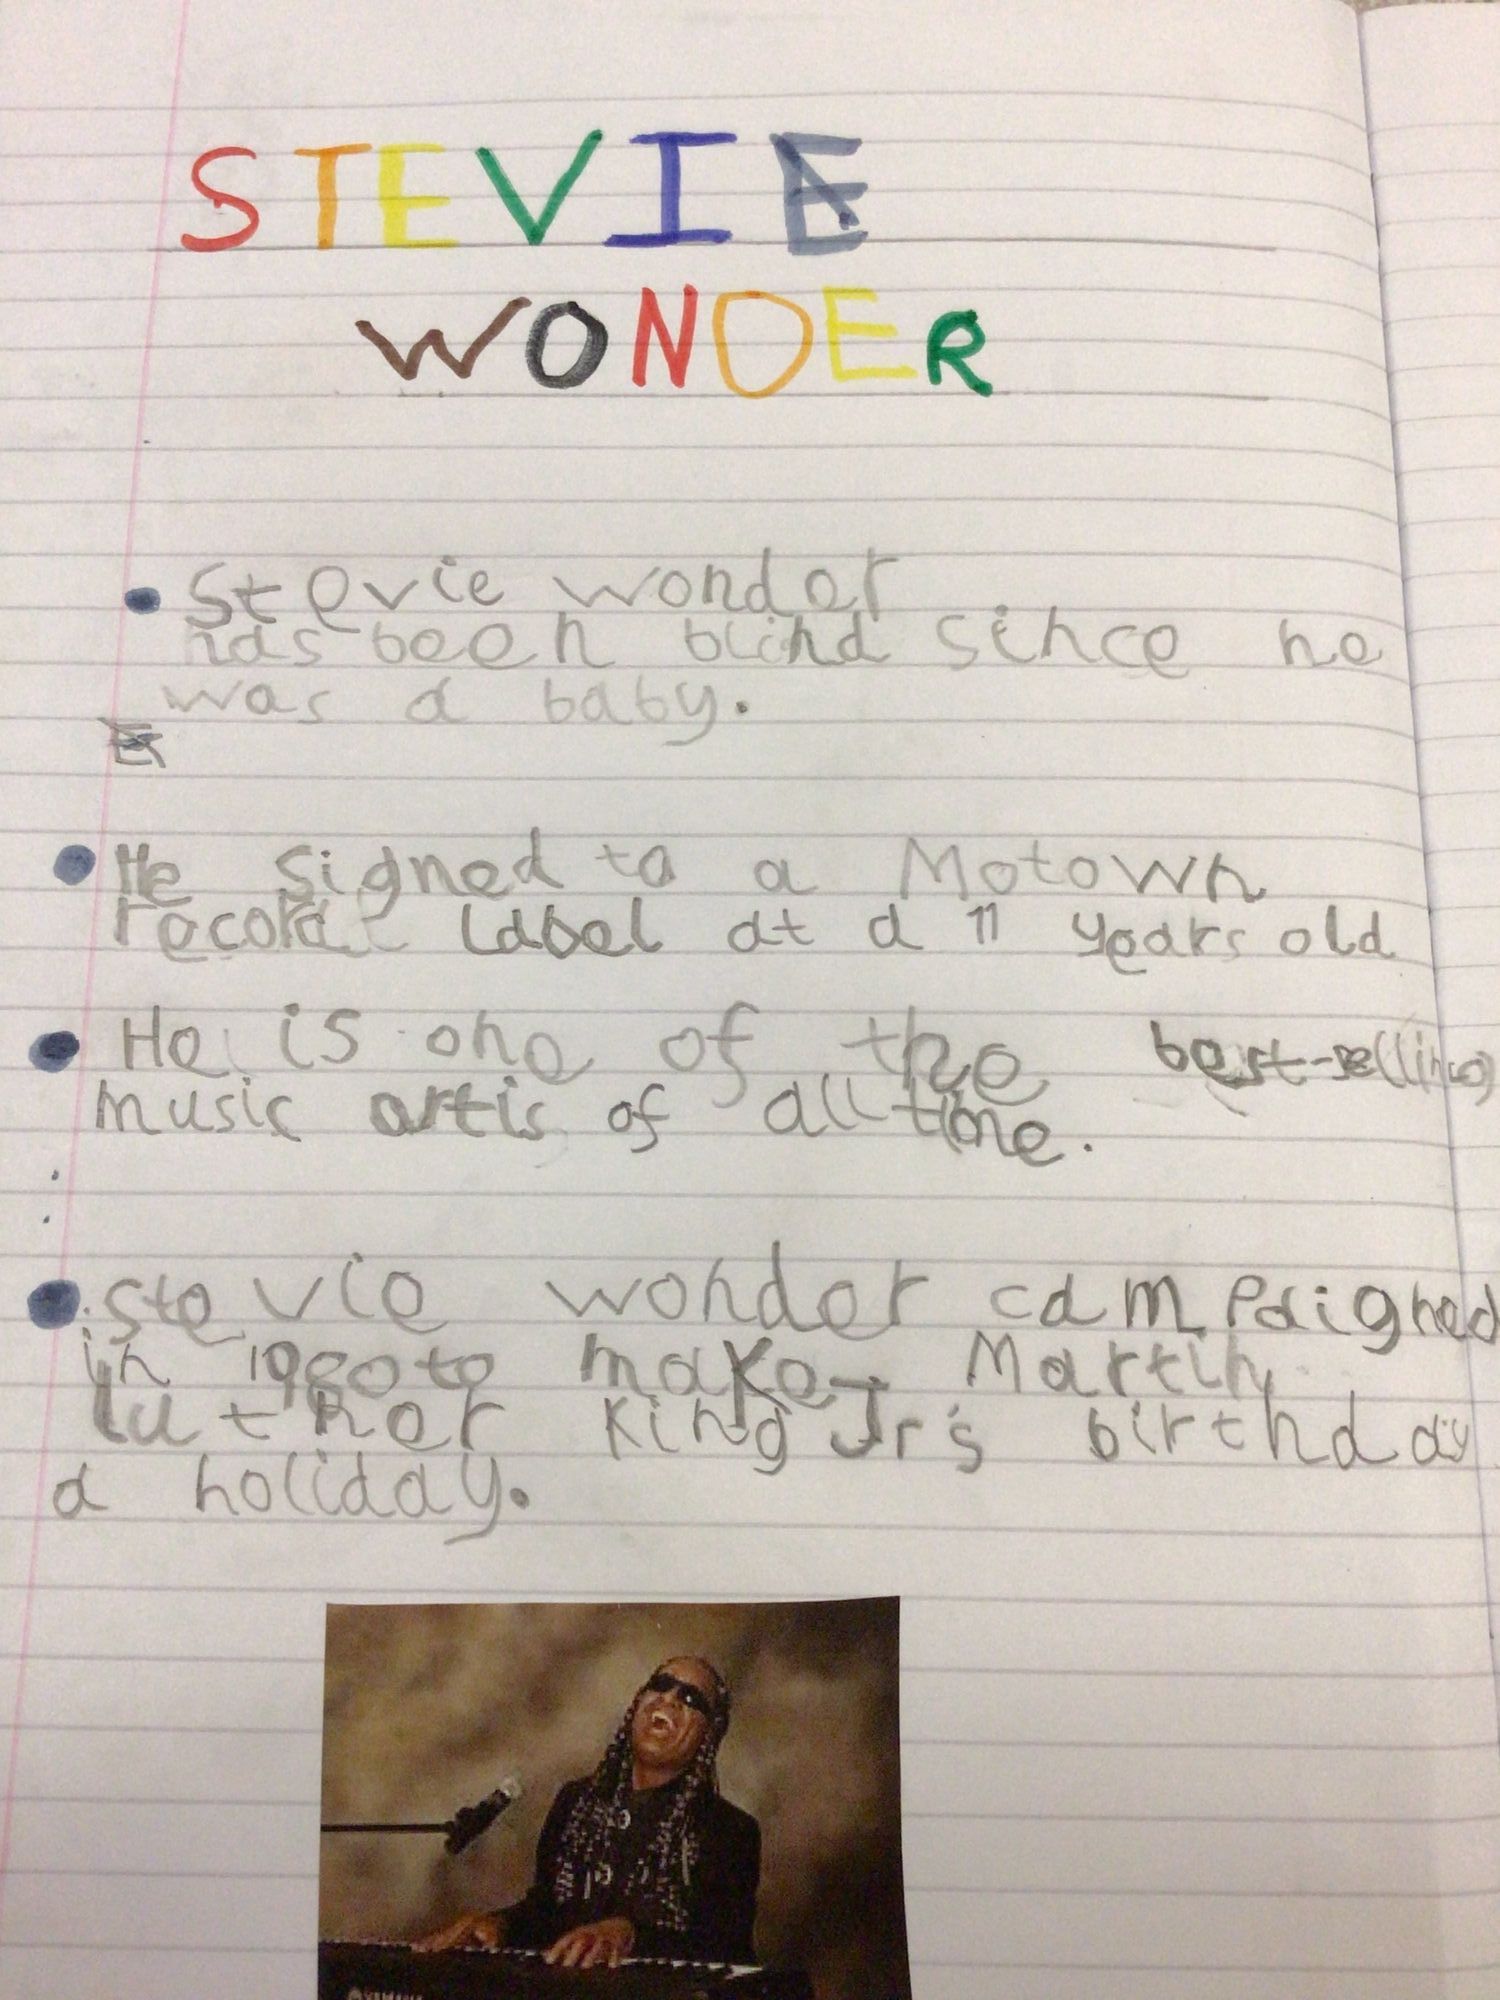 STEVIE
WONDER
• Stevie wonder
has been blind since he
was a baby.
• He signed to a Motown
record label at a 11 years old
• He is one of the best-selling
music artis of all time.
• Stevie wonder campaigned
in 1980 to make Martin
luther King Jr's birthday
a holiday.
YAMAHA